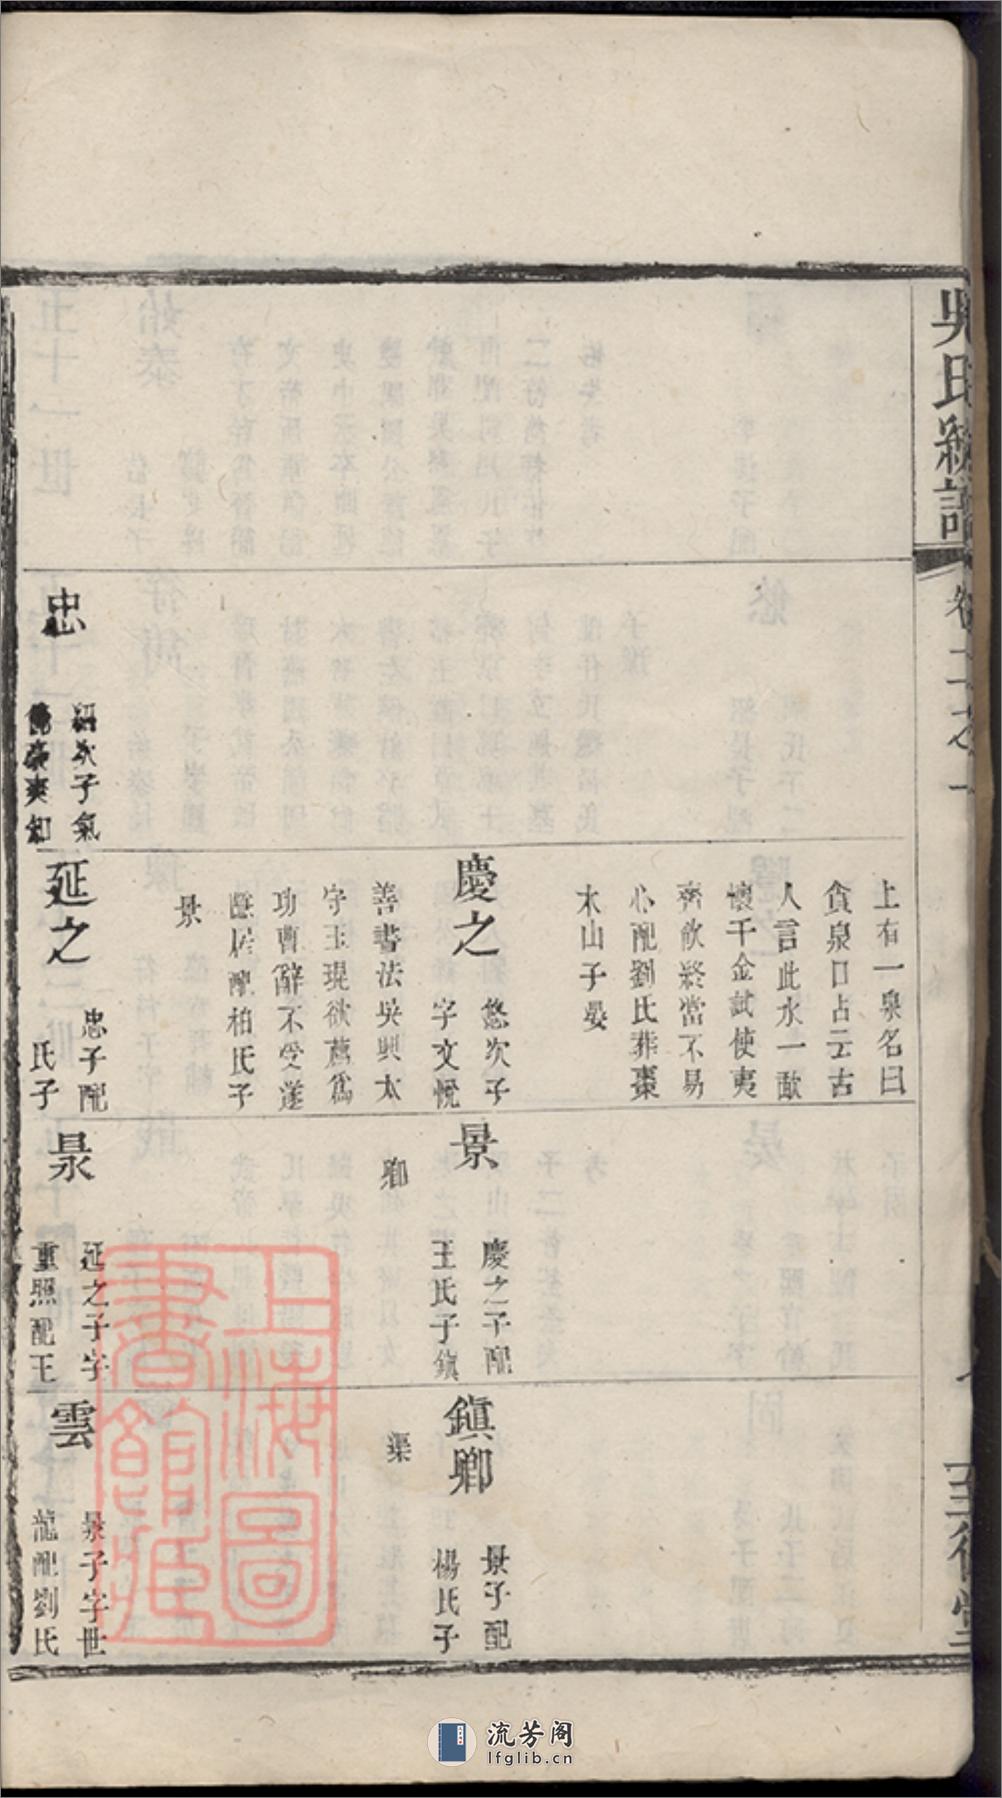 吳氏統譜
卷二之一
至德堂
忠
紹次子氣
豪爽
上有一泉名曰
貪泉口占云古
人言此水一歃
懷千金試使夷
齊飲終當不易
心配劉氏葬棗
木山子晏
慶之
悠次子
字文悅
善書法吳興太
守王琨欲薦爲
功曹辭不受遂
隱居配柏氏子
景
延之
忠子配
氏子
景
慶之子配
王氏子鎮
卿
延之子字
重照配王
鎮卿
景子配
楊氏子
渠
雲
子字世
龍配劉氏
上海圖
書館藏
流芳阁
lfglib.cn